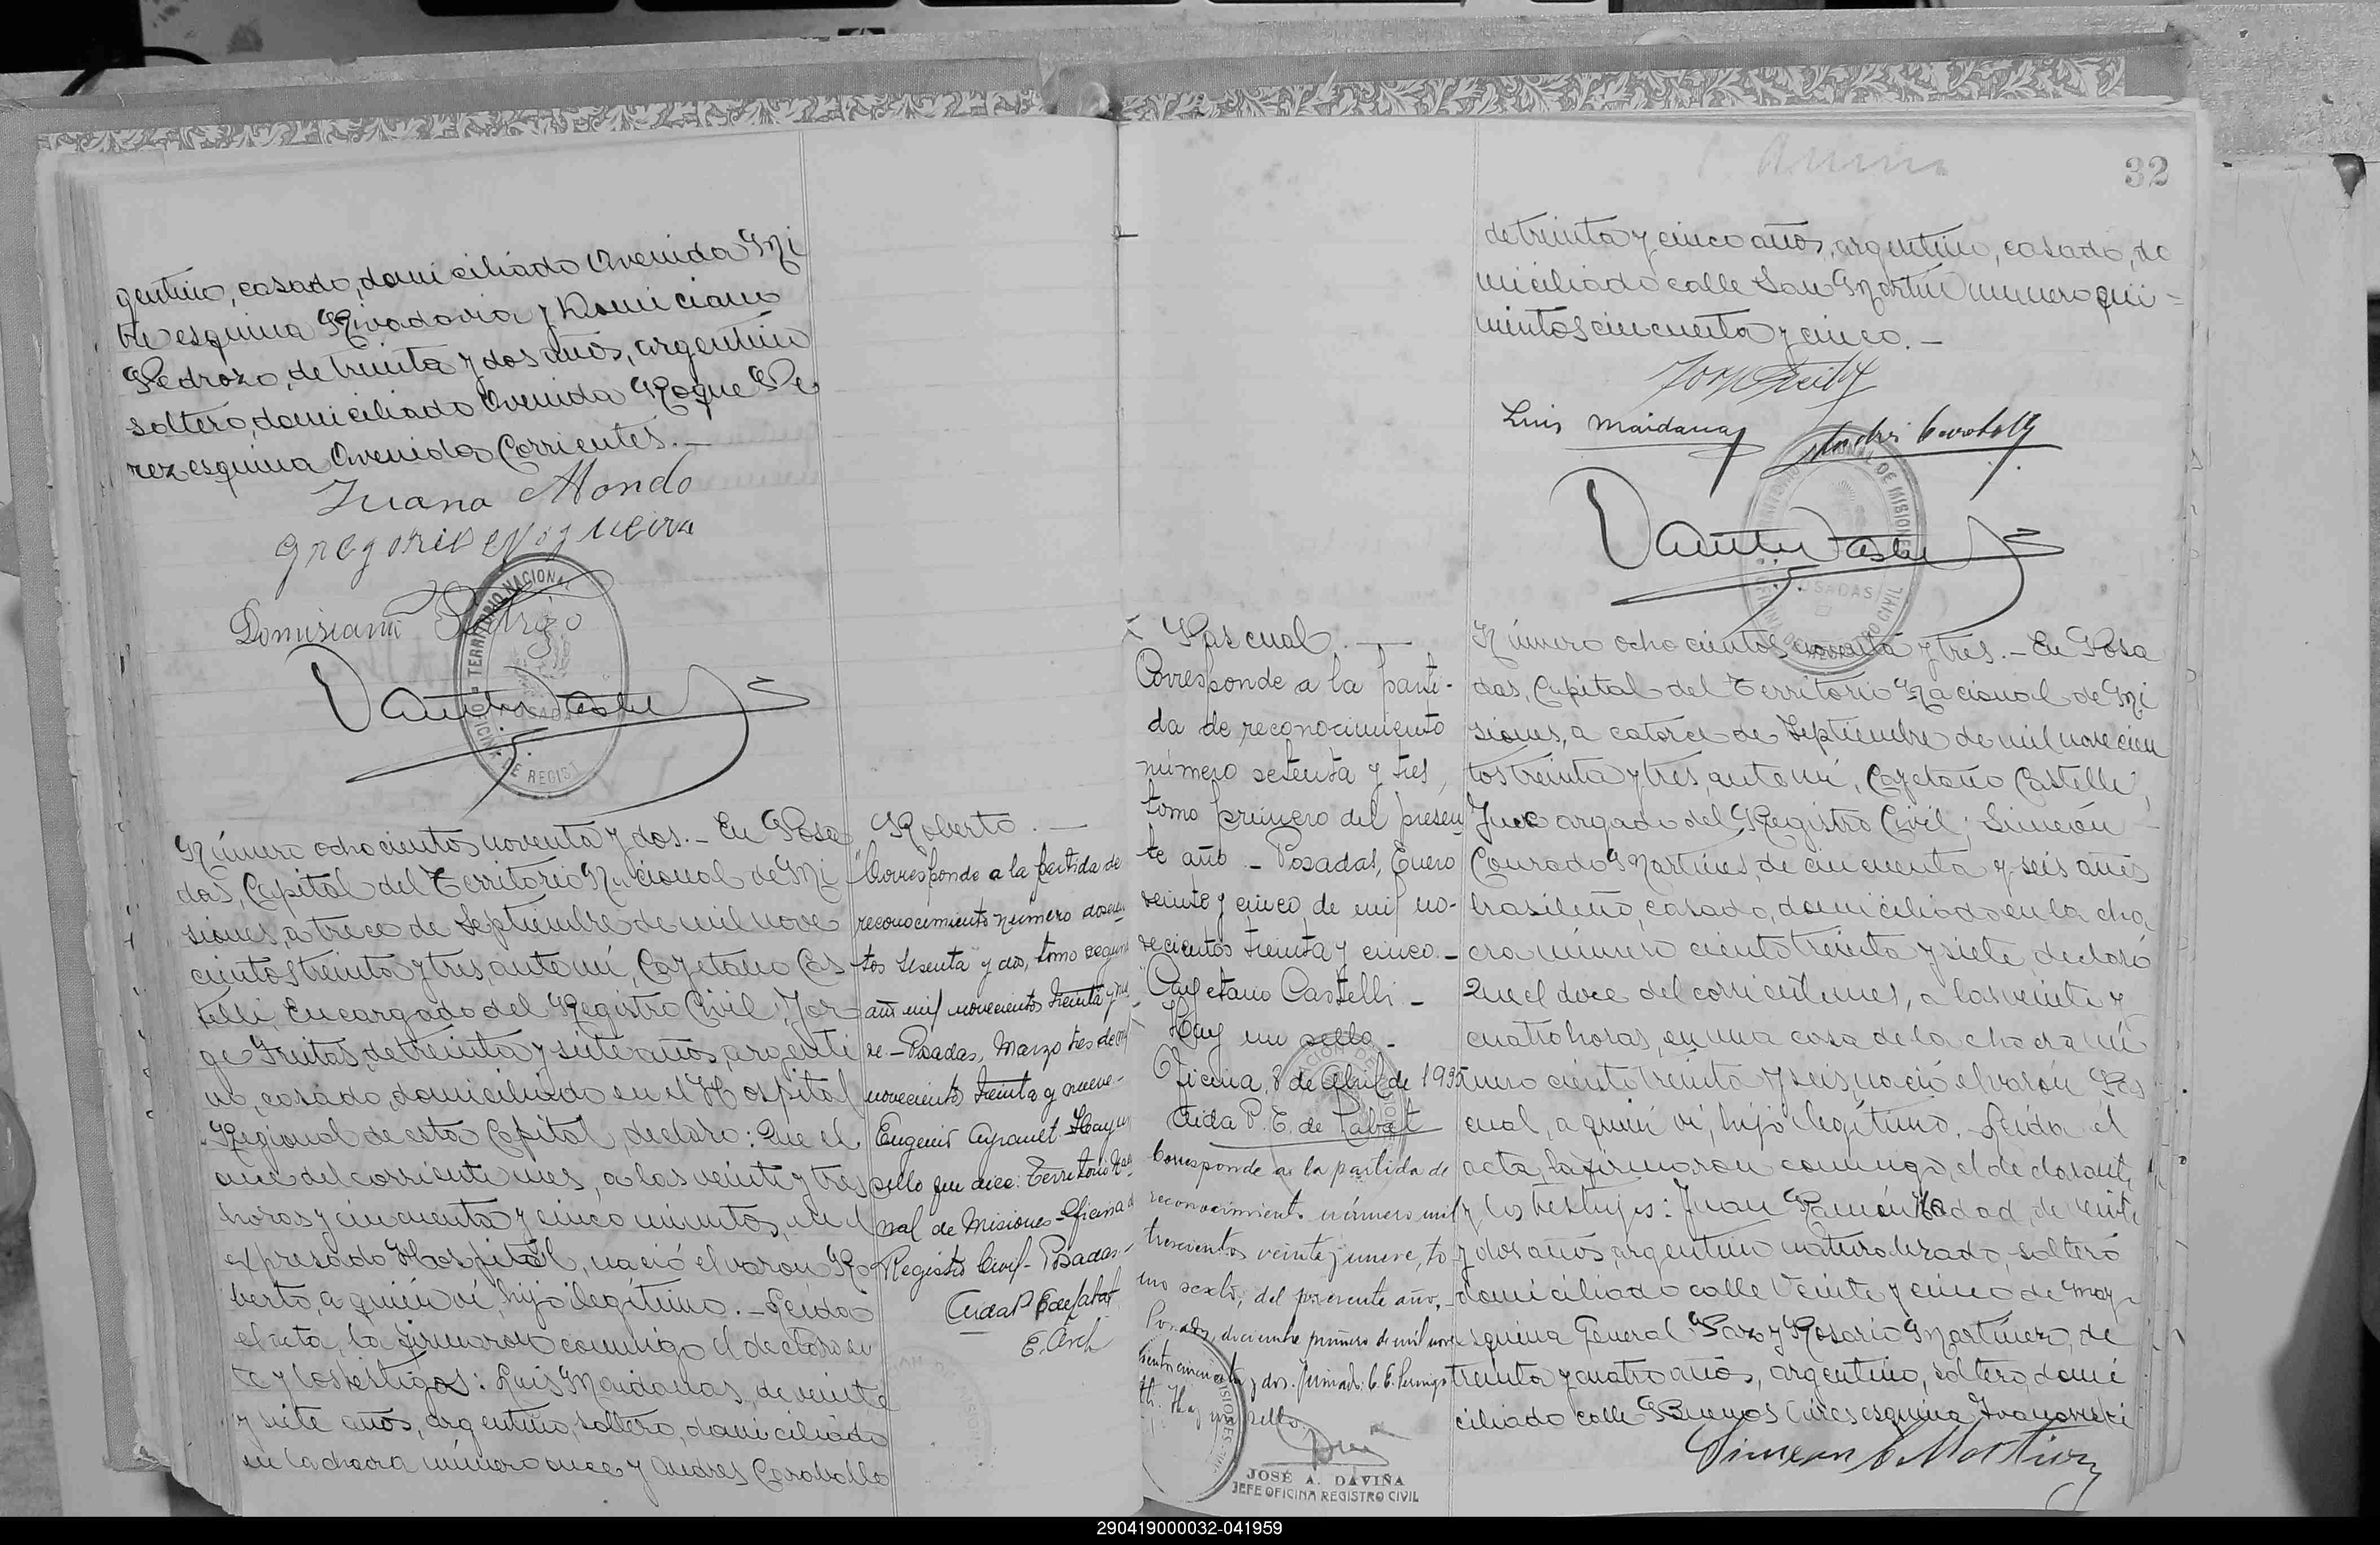 gentino, casado, domiciliado Avenida Mi
tre esquina Rivadavia y Domiciano
Pedrozo, de treinta y dos años, argentino
soltero, domiciliado Avenida Roque Pe
rez esquina Avenida Corrientes.—
Juana Mondo
Gregorio Nogueira
Domisiano
TERRITORIO NACIONAL
Número ochocientos noventa y dos.— En Posa
das, Capital del Territorio Nacional de Mi
siones, a trece de Septiembre de mil nove
cientos treinta y tres, ante mí, Cayetano Cas
telli, Encargado del Registro Civil, Jor
ge Freitas, de treinta y siete años, argenti
no, casado, domiciliado en el Hospital
Regional de esta Capital, declaró: Que el
once del corriente mes, a las veinte y tres
horas y cincuenta y cinco minutos, en el
expresado Hospital, nació el varon Ro
berto, a quién ví, hijo ilegítimo.— Leída
el acta, la firmaron conmigo el declaran
te y los testigos: Luis Maidanas, de veinte
y siete años, argentino, soltero, domiciliado
en la chacra número once y Andres Caraballo
Roberto.—
Corresponde a la partida de
reconocimiento número doscien
tos sesenta y dos, tomo segundo
año mil novecientos treinta y nue
ve.— Posadas, Marzo tres de mil
novecientos treinta y nueve.—
Eugenio Hay un
sello que dice: Territorio Nacio
nal de Misiones - Oficina de
Registro Civil - Posadas.—
Aida P. E. de Labat
32
de treinta y cinco años, argentino, casado, do
miciliado calle San Martín número qui=
nientos cincuenta y cinco.—
Luis Maidana
Pascual.—
Corresponde a la parti-
da de reconocimiento
número setenta y tres,
tomo primero del presen
te año.— Posadas, Enero
veinte y cinco de mil no-
vecientos treinta y cinco.—
"Cayetano Castelli.—
Hay un sello.—
Oficina, 8 de Abril de 1935
Aida P. E. de Labat
Corresponde a la partida de
reconocimiento número mil
trescientos veinte y nueve, to
mo sexto, del presente año,—
Posadas, diciembre primero de mil nove
cientos cincuenta y dos. firmado:
Hay un sello
JOSÉ A. DAVIÑA
JEFE OFICINA REGISTRO CIVIL
Número ochocientos noventa y tres.— En Posa
das, Capital del Territorio Nacional de Mi
siones, a catorce de Septiembre de mil novecien
tos treinta y tres, ante mí, Cayetano Castelli,
cargado del Registro Civil; Simeón
Conrado Martines, de cincuenta y seis años
brasileño, casado, domiciliado en la cha
cra número ciento treinta y siete, declaró
Que el doce del corriente mes, a las veinte y
cuatro horas, en una casa de la chacra nú
mero ciento treinta y seis, nació el varón Pas
cual, a quién ví, hijo ilegítimo. Leída el
acta, la firmaron conmigo, el declarante
y los testigos: Juan Ramón de veinte
y dos años, argentino naturalizado, soltero
domiciliado calle Veinte y cinco de Mayo
esquina General Paz y Rosario Martínez, de
treinta y cuatro años, argentino, soltero, domi
ciliado calle Buenos Aires esquina Ivanowski
Simeon C. Martinez
290419000032-041959